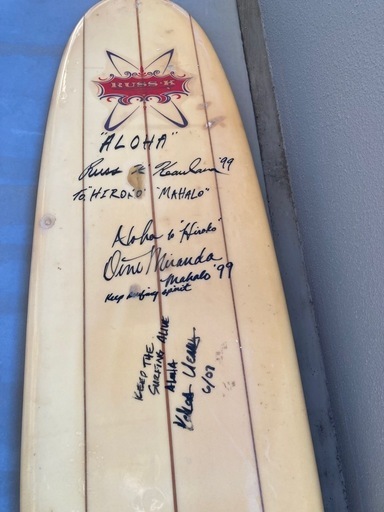 RUSS·K
"ALOHA"
Russ K Keaulana '99
TO "HIROKO" "MAHALO"
Aloha to "Hiroko"
Dino Miranda
Mahalo '99
Keep surfing spirit
KEEP THE
SURFING ALIVE
Aloha
6/07